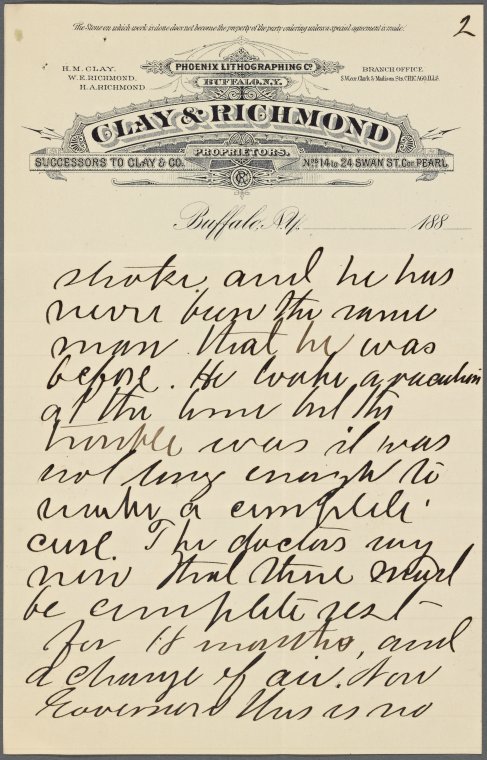 The Stone on which work is done does not become the property of the party ordering unless a special agreement is made.
2
H. M. CLAY.
W. E. RICHMOND.
H. A. RICHMOND
PHOENIX LITHOGRAPHING Co.
BUFFALO, N.Y.
BRANCH OFFICE
S.W. cor Clark & Madison Sts. CHICAGO, ILLS.
CLAY & RICHMOND
PROPRIETORS.
SUCCESSORS TO CLAY & CO.
Nos 14 to 24 SWAN ST. Cor PEARL
CR
Buffalo, N.Y. 188
stroke, and he has
never been the same
man that he was
before. He took a vacation
at the time but the
trouble was it was
not long enough to
make a complete
cure. The doctors say
now that there must
be complete rest
for 18 months, and
a change of air. Now
Governor this is no